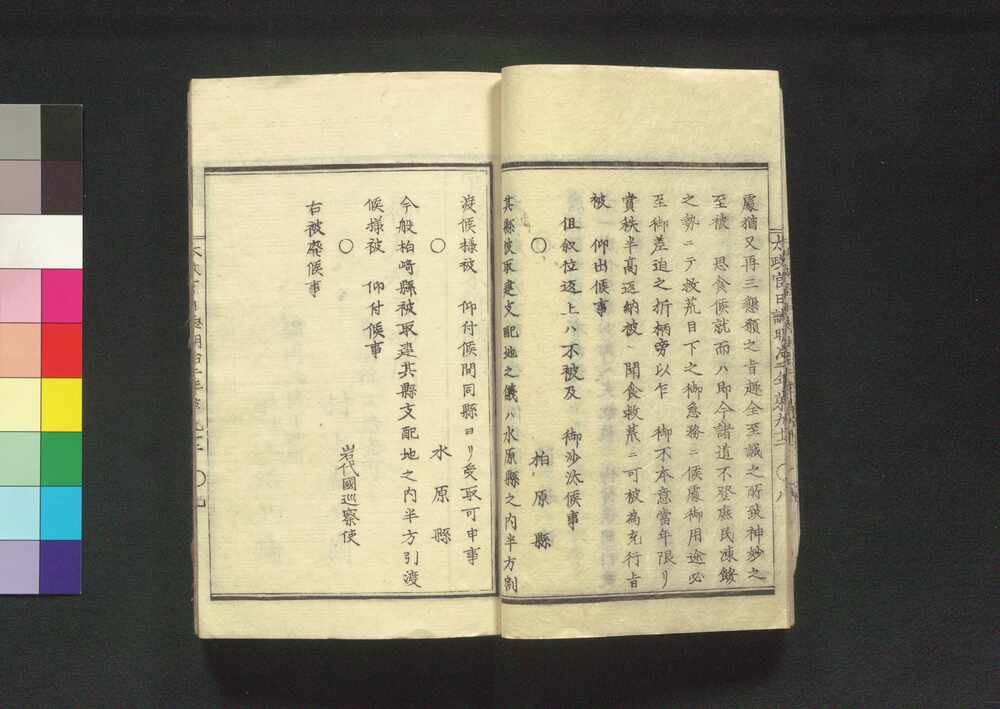 處猶又再三懇願之旨趣全至誠之所致神妙之
至被　思食候就而ハ即今諸道不登庶民凍餒
之勢ニテ救荒目下之御急務ニ候處御用途必
至御差迫之折柄旁以乍　御不本意當年限リ
賞秩半高返納被　聞食救荒ニ可被為充行旨
被　仰出候事
但叙位返上ハ不被及　御沙汰候事
○　柏原縣
其縣被取建支配地之儀ハ水原縣之内半方割
渡候様被　仰付候間同縣ヨリ受取可申事
○　水原縣
今般柏﨑縣被取建其縣支配地之内半方引渡
候様被　仰付候事
○　岩代國巡察使
右被廢候事